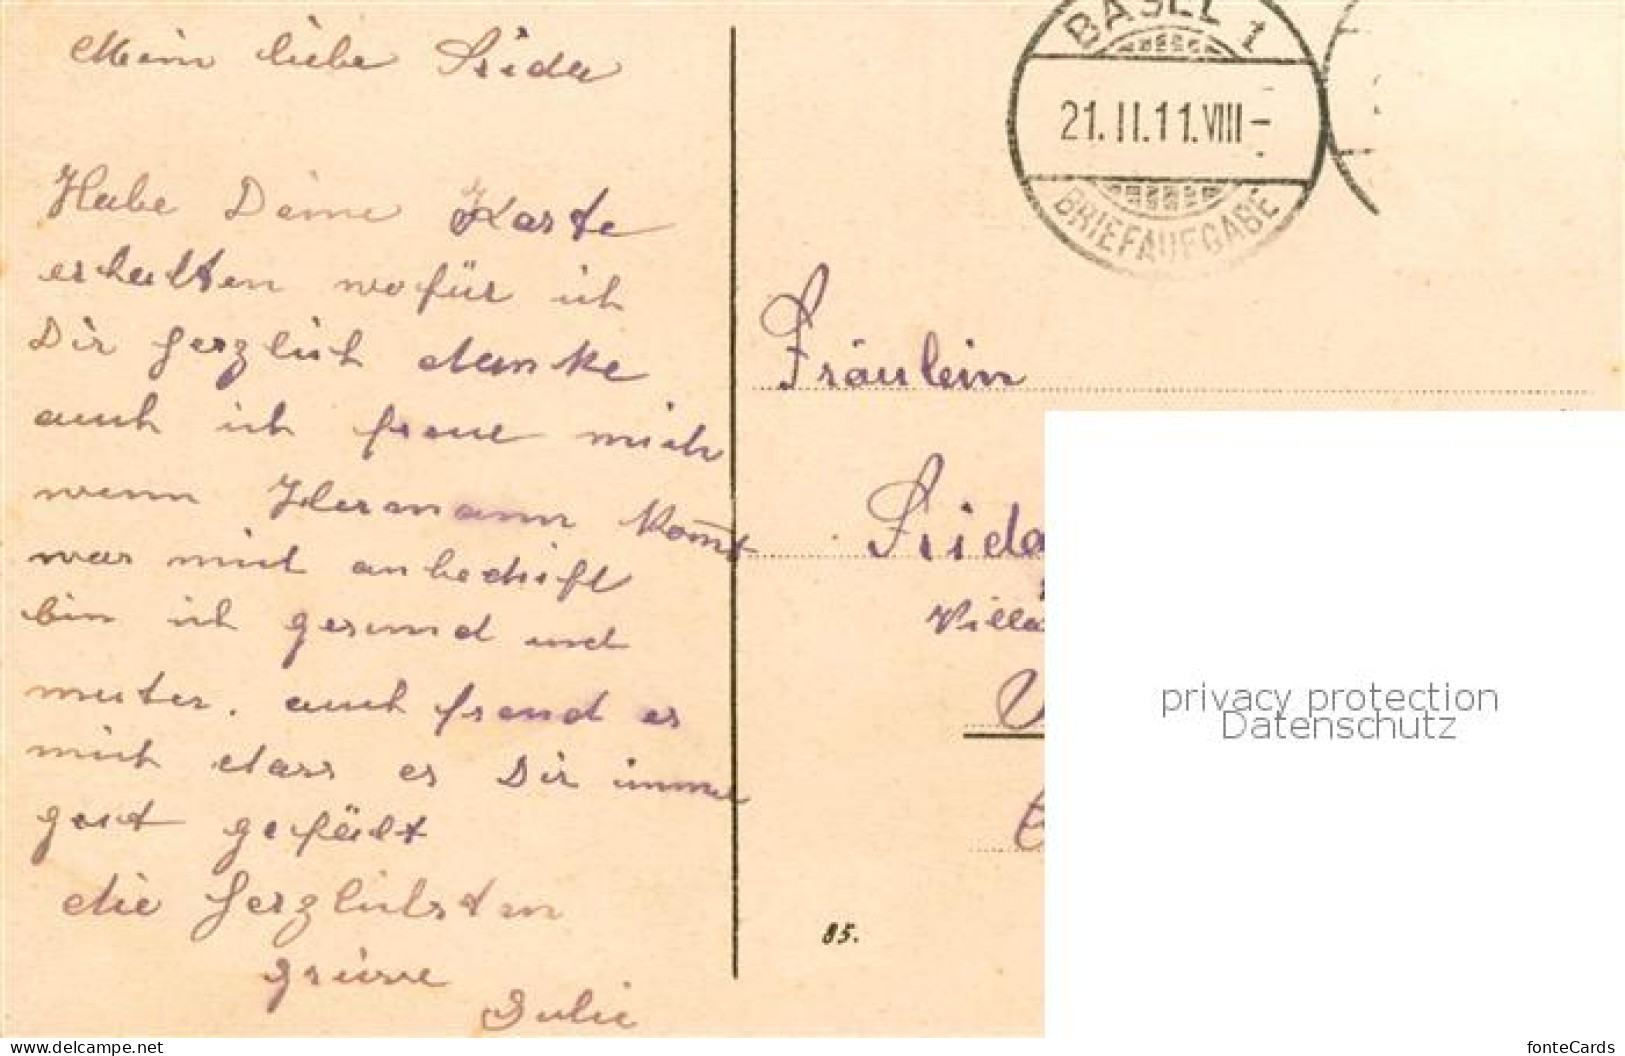 Mein liebe Frida
Habe Deine Karte
erhalten wofür ich
Dir herzlich danke
auch ich freue mich
wenn Hermann kom̄t
was mich anbedrift
bin ich gesund und
muter. auch freud es
mich dass es Dir imme
gut gefält
die herzlichsten
grüsse
Julie
BASEL 1
21.II.11.VIII-
BRIEFAUFGABE
Fräulein
Frida
Villa
85.
privacy protection
Datenschutz
www.delcampe.net
fonteCards